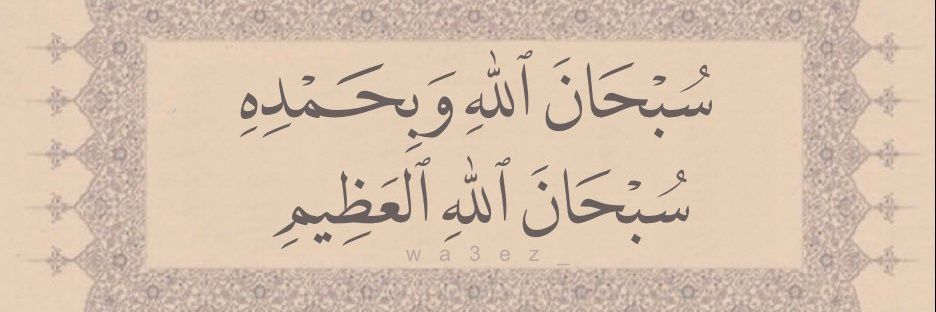 سُبْحَانَ ٱللهِ وَبِحَمْدِهِ
سُبْحَانَ ٱللهِ ٱلْعَظِيمِ
wa3ez_